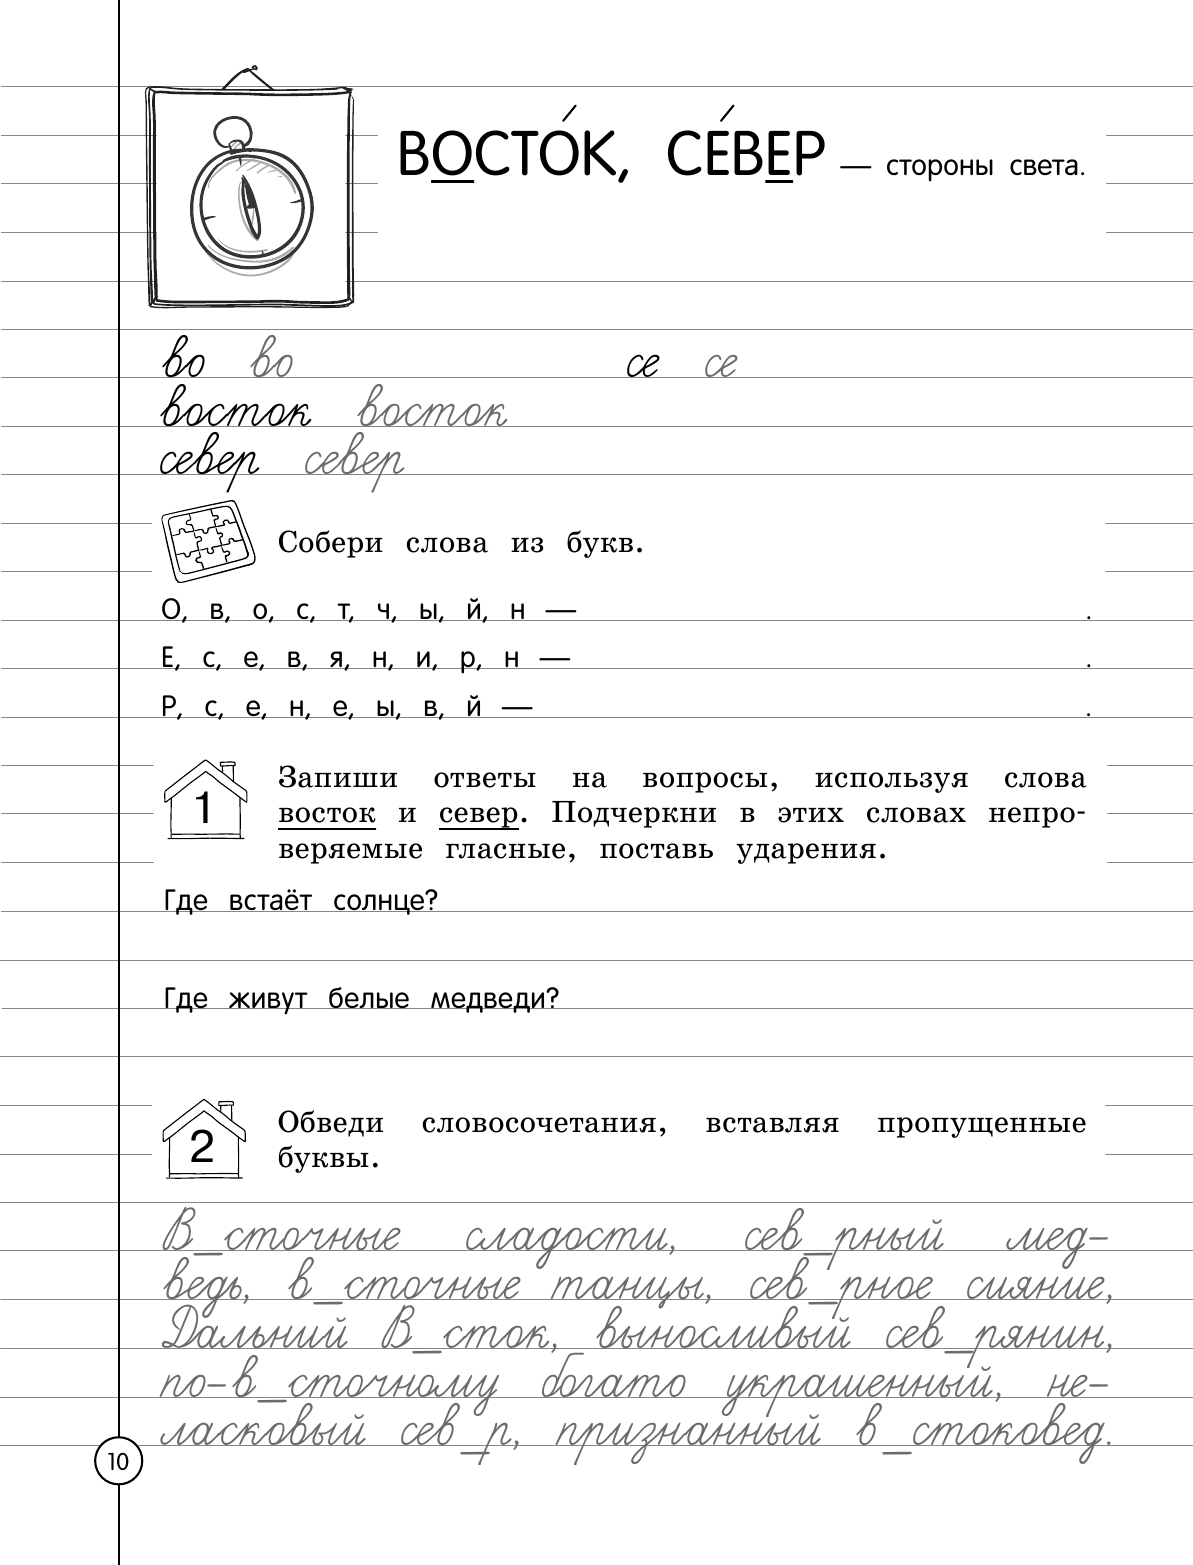 ВОСТО́К, СЕ́ВЕР — стороны света.
во во се се
восток восток
север север
Собери слова из букв.
О, в, о, с, т, ч, ы, й, н — .
Е, с, е, в, я, н, и, р, н — .
Р, с, е, н, е, ы, в, й — .
1
Запиши ответы на вопросы, используя слова
восток и север. Подчеркни в этих словах непро-
веряемые гласные, поставь ударения.
Где встаёт солнце?
Где живут белые медведи?
2
Обведи словосочетания, вставляя пропущенные
буквы.
В_сточные сладости, сев_рный мед-
ведь, в_сточные танцы, сев_рное сияние,
Дальний В_сток, выносливый сев_рянин,
по-в_сточному богато украшенный, не-
ласковый сев_р, признанный в_стоковед.
10